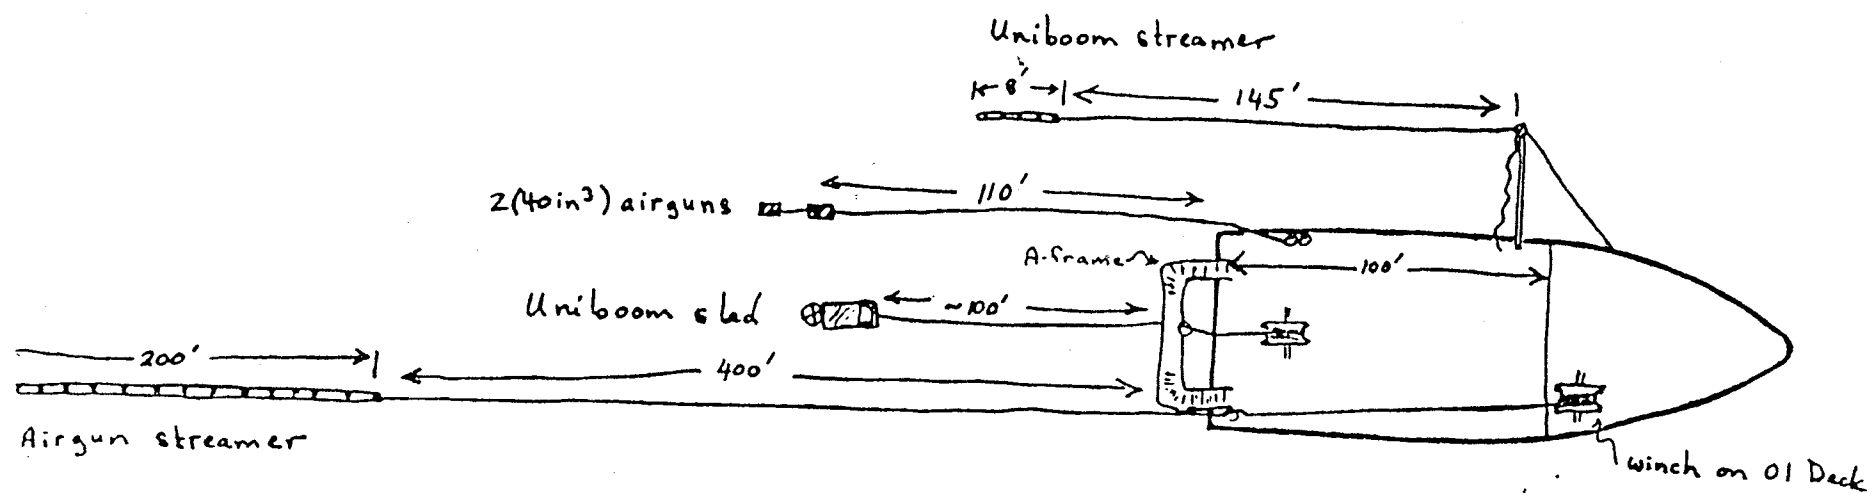 Uniboom streamer
8'
145'
2(40in³) airguns
110'
A-frame
100'
Uniboom sled
~100'
200'
400'
Airgun streamer
winch on 01 Deck